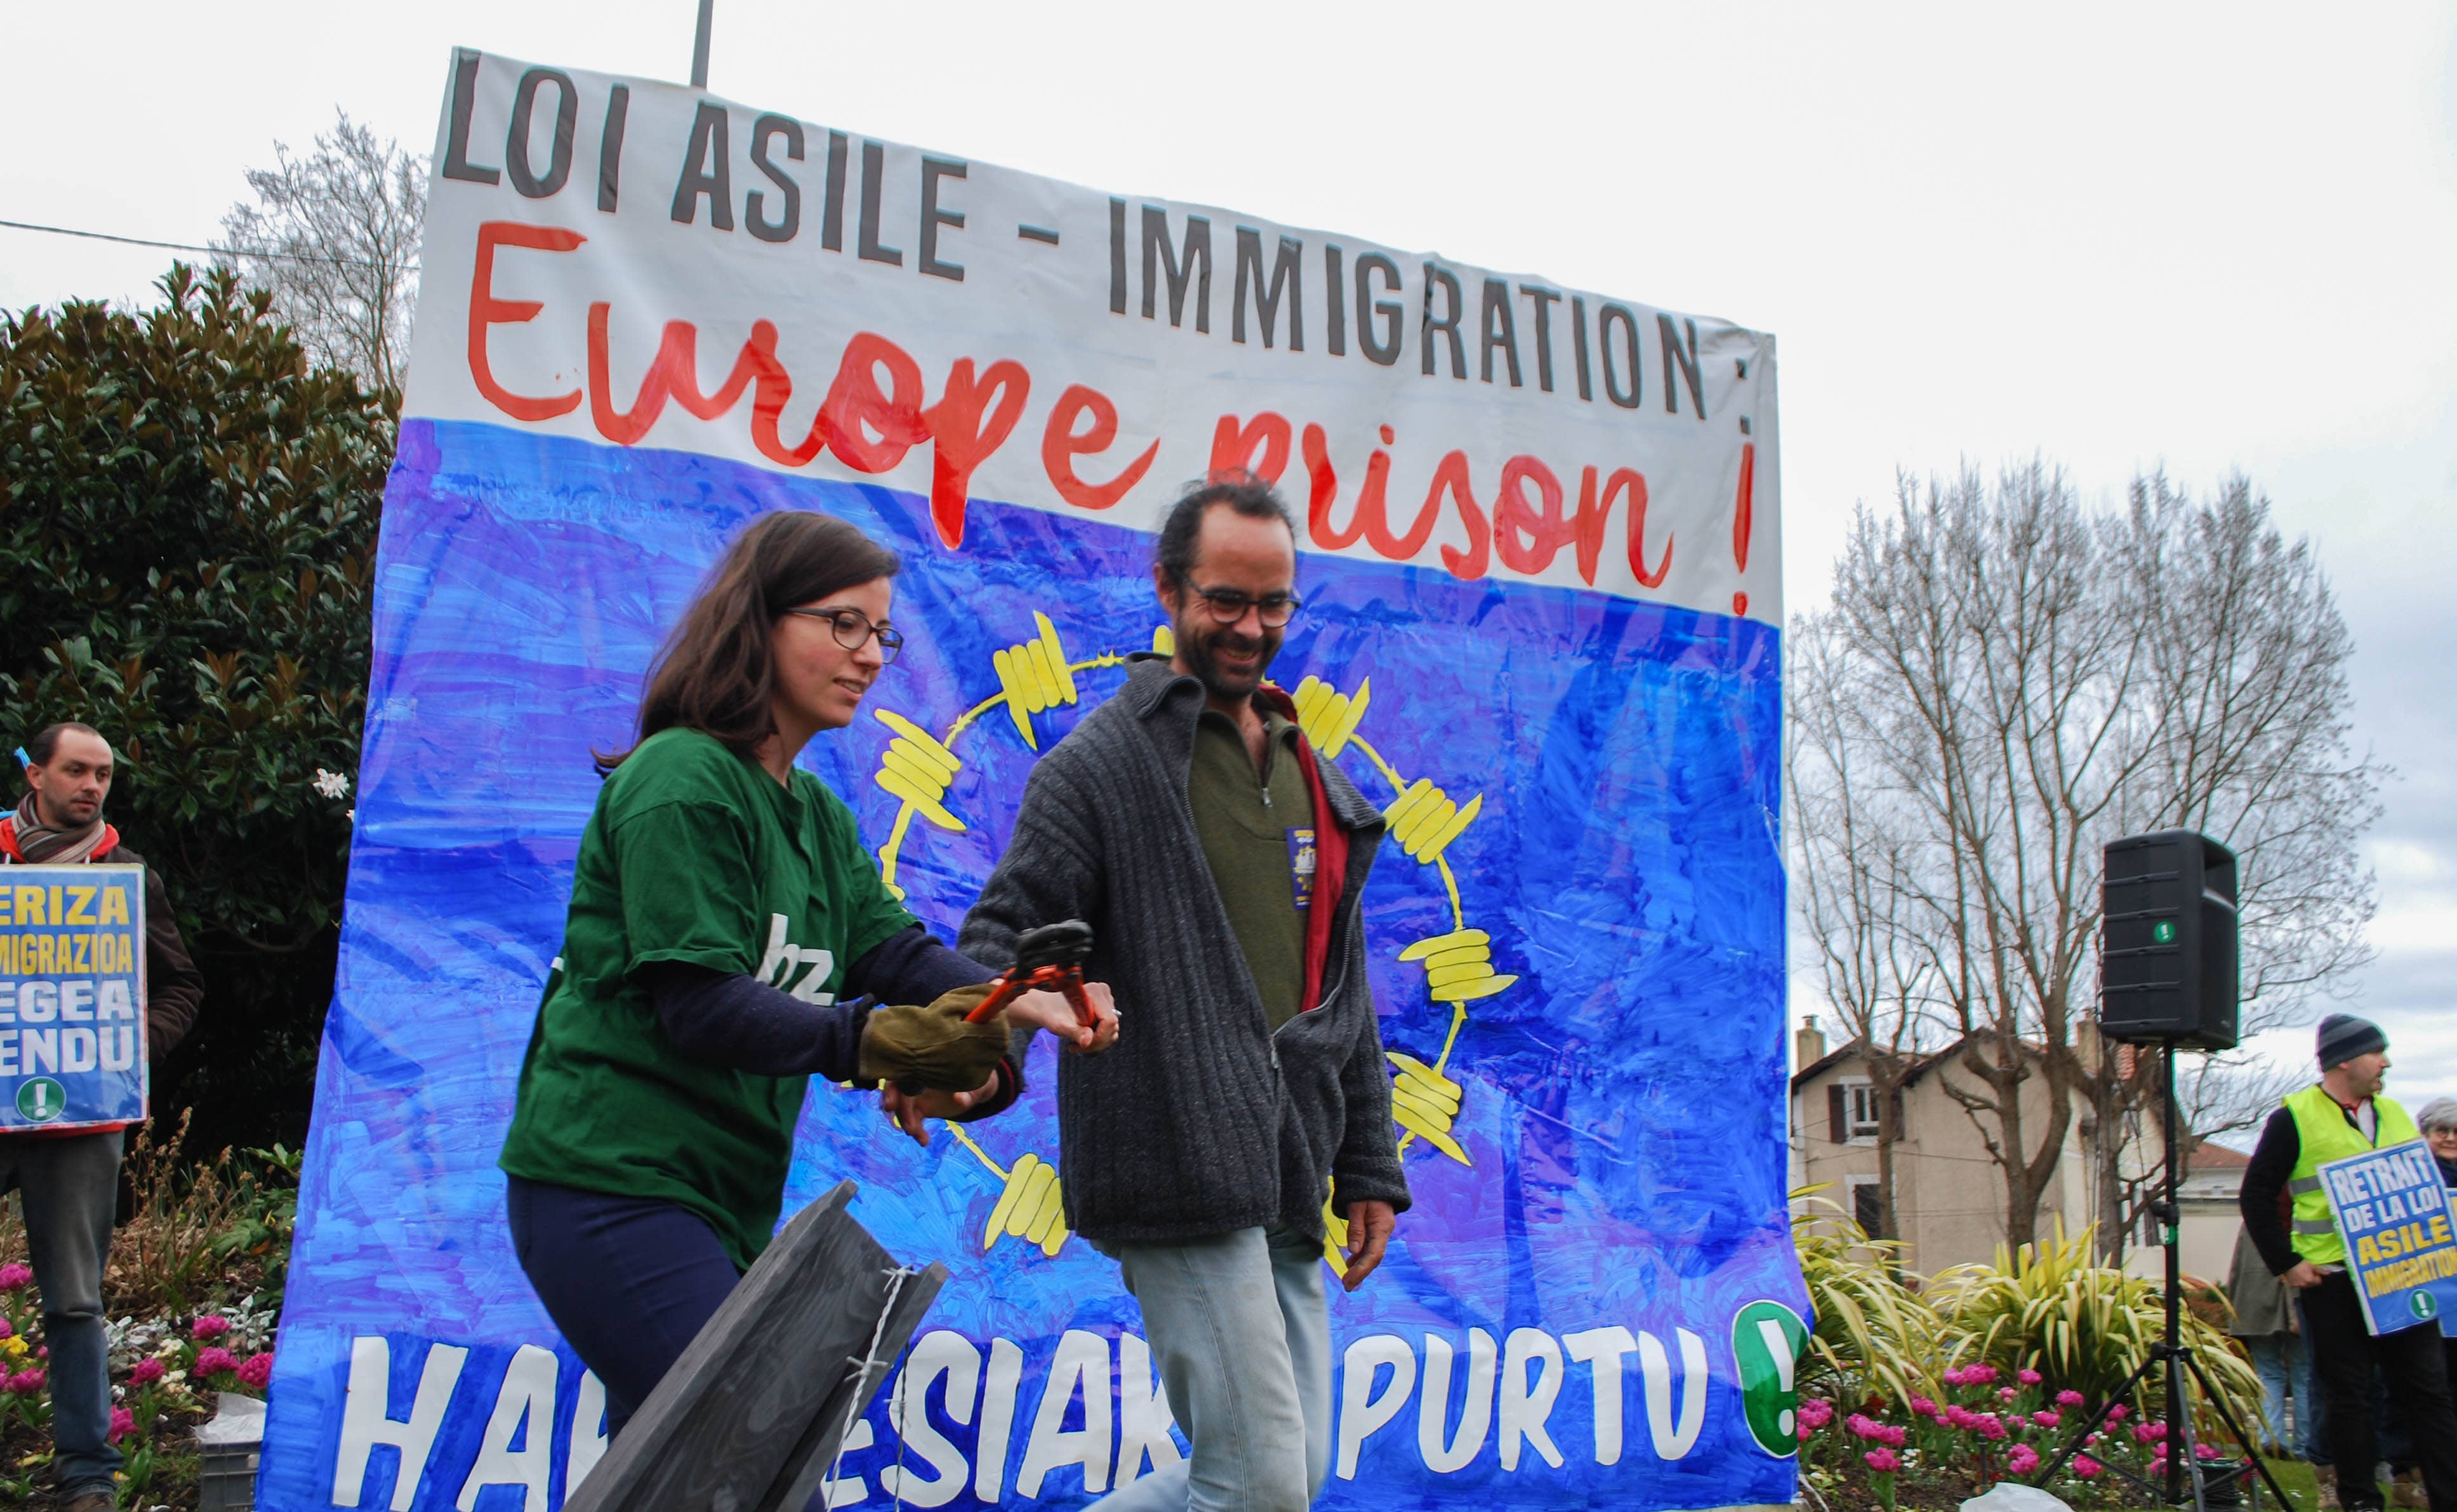 LOI ASILE - IMMIGRATION :
Europe prison !
PURTU !
ERIZA
MIGRAZIOA
EGEA
ENDU
!
bz
RETRAIT
DE LA LOI
ASILE
IMMIGRATION
!